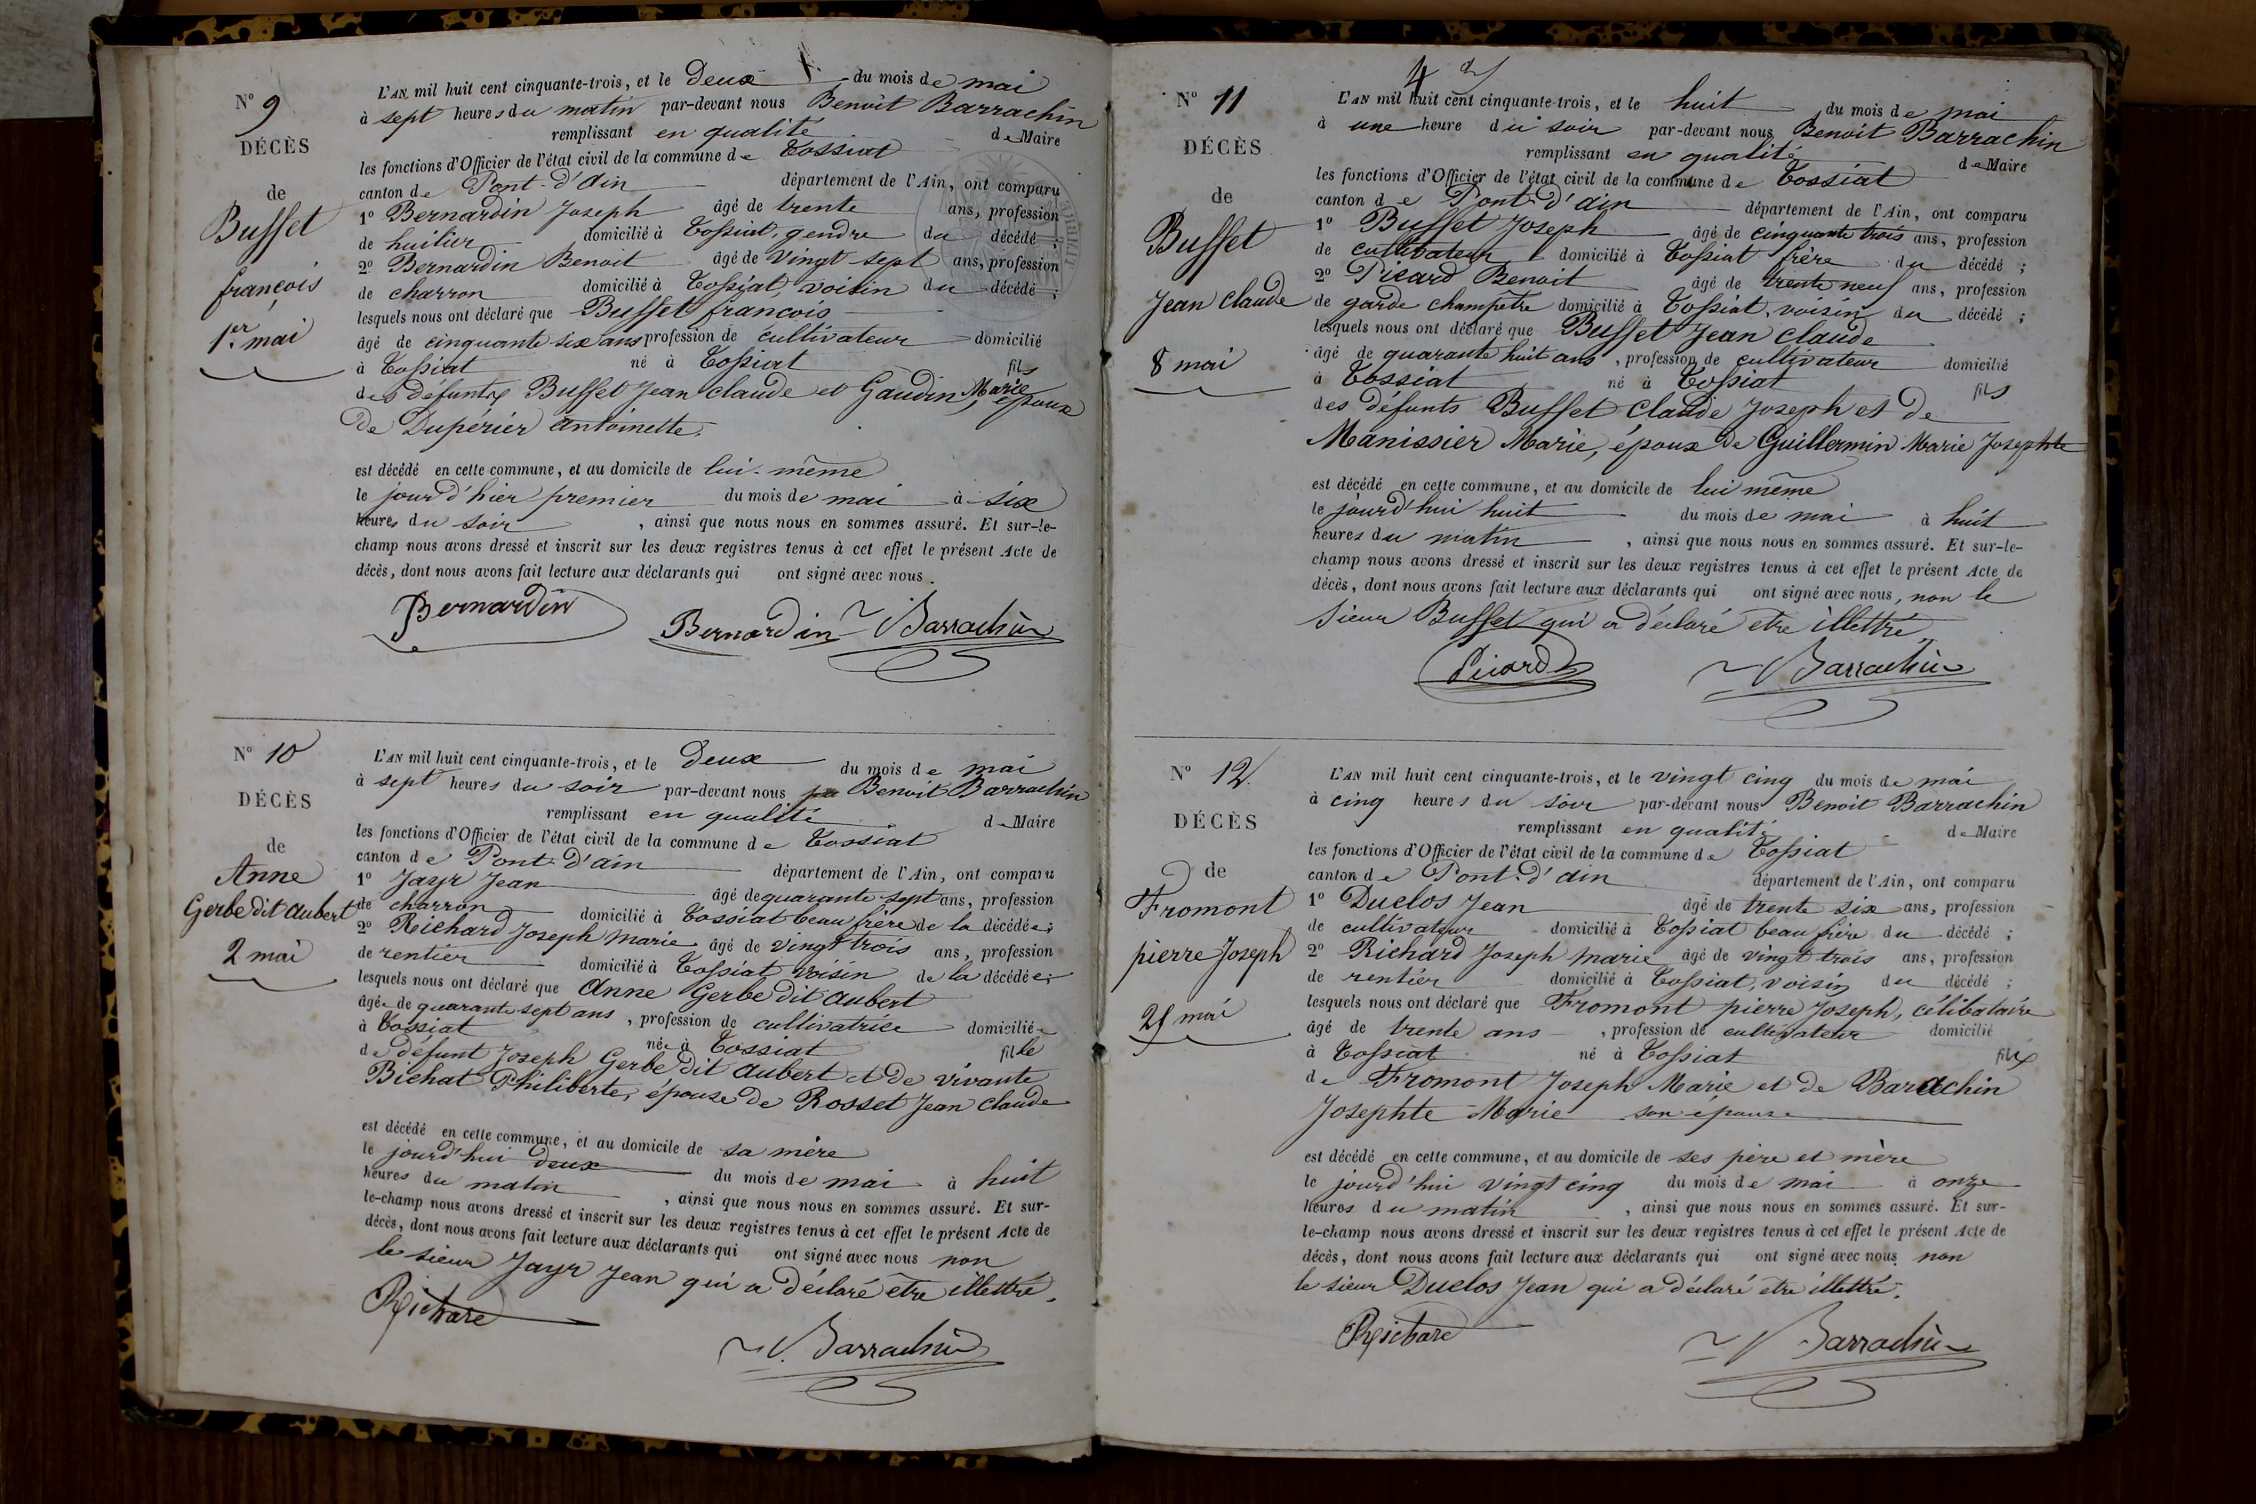 N° 9
DÉCÈS
de
Buffet
françois
1er mai
L'AN mil huit cent cinquante-trois, et le Deux du mois de mai
à sept heures du matin par-devant nous Benoit Barrachin
remplissant en qualité de Maire
les fonctions d'Officier de l'état civil de la commune de Tossiat
canton de Pont-d'ain département de l'Ain, ont comparu
1° Bernardin Joseph âgé de trente ans, profession
de huilier domicilié à Tossiat, gendre du décédé ;
2° Bernardin Benoit âgé de vingt sept ans, profession
de charron domicilié à Tossiat, voisin du décédé ;
lesquels nous ont déclaré que Buffet françois
âgé de cinquante six ans profession de cultivateur domicilié
à Tossiat né à Tossiat fils
des défunts Buffet Jean claude et Gaudin Marie, époux
de Dupérier antoinette.
est décédé en cette commune, et au domicile de lui-même
le jourd'hier premier du mois de mai à six
heures du soir, ainsi que nous nous en sommes assuré. Et sur-le-
champ nous avons dressé et inscrit sur les deux registres tenus à cet effet le présent Acte de
décès, dont nous avons fait lecture aux déclarants qui ont signé avec nous.
Bernardin Bernardin Barrachin
N° 10
DÉCÈS
de
Anne
Gerbe dit aubert
2 mai
L'AN mil huit cent cinquante-trois, et le deux du mois de mai
à sept heures du soir par-devant nous Benoit Barrachin
remplissant en qualité de Maire
les fonctions d'Officier de l'état civil de la commune de Tossiat
canton de Pont-d'ain département de l'Ain, ont comparu
1° Jayr Jean âgé de quarante-sept ans, profession
de charron domicilié à Tossiat beau frère de la décédée ;
2° Richard Joseph marie âgé de vingt trois ans, profession
de rentier domicilié à Tossiat, voisin de la décédée ;
lesquels nous ont déclaré que Anne Gerbe dit aubert
âgée de quarante sept ans, profession de cultivatrice domiciliée
à Tossiat née à Tossiat fille
de défunt Joseph Gerbe dit aubert et de vivante
Bichat Philiberte, épouse de Rosset Jean claude
est décédé en cette commune, et au domicile de sa mère
le jourd'hui deux du mois de mai à huit
heures du matin, ainsi que nous nous en sommes assuré. Et sur-
le-champ nous avons dressé et inscrit sur les deux registres tenus à cet effet le présent Acte de
décès, dont nous avons fait lecture aux déclarants qui ont signé avec nous non
le sieur Jayr Jean qui a déclaré être illettré.
Richard
Barrachin
4
N° 11
DÉCÈS
de
Buffet
Jean claude
8 mai
L'AN mil huit cent cinquante-trois, et le huit du mois de mai
à une heure du soir par-devant nous Benoit Barrachin
remplissant en qualité de Maire
les fonctions d'Officier de l'état civil de la commune de Tossiat
canton de Pont-d'ain département de l'Ain, ont comparu
1° Buffet Joseph âgé de cinquante trois ans, profession
de cultivateur domicilié à Tossiat frère du décédé ;
2° Picard Benoit âgé de trente neuf ans, profession
de garde champêtre domicilié à Tossiat, voisin du décédé ;
lesquels nous ont déclaré que Buffet Jean claude
âgé de quarante huit ans, profession de cultivateur domicilié
à Tossiat né à Tossiat fils
des défunts Buffet Claude Joseph et de
Manissier Marie, époux de Guillermin Marie Josephte
est décédé en cette commune, et au domicile de lui même
le jourd'hui huit du mois de mai à huit
heures du matin, ainsi que nous nous en sommes assuré. Et sur-le-
champ nous avons dressé et inscrit sur les deux registres tenus à cet effet le présent Acte de
décès, dont nous avons fait lecture aux déclarants qui ont signé avec nous, non le
sieur Buffet qui a déclaré etre illettré.
Picard Barrachin
N° 12
DÉCÈS
de
Fromont
pierre Joseph
25 mai
L'AN mil huit cent cinquante-trois, et le vingt cinq du mois de mai
à cinq heures du soir par-devant nous Benoit Barrachin
remplissant en qualité de Maire
les fonctions d'Officier de l'état civil de la commune de Tossiat
canton de Pont-d'ain département de l'Ain, ont comparu
1° Duclos Jean âgé de trente six ans, profession
de cultivateur domicilié à Tossiat beau frère du décédé ;
2° Richard Joseph marie âgé de vingt trois ans, profession
de rentier domicilié à Tossiat, voisin du décédé ;
lesquels nous ont déclaré que Fromont pierre Joseph, célibataire
âgé de trente ans, profession de cultivateur domicilié
à Tossiat né à Tossiat fils
de Fromont Joseph Marie et de Barachin
Josephte Marie son épouse
est décédé en cette commune, et au domicile de ses père et mère
le jourd'hui vingt cinq du mois de mai à onze
heures du matin, ainsi que nous nous en sommes assuré. Et sur-
le-champ nous avons dressé et inscrit sur les deux registres tenus à cet effet le présent Acte de
décès, dont nous avons fait lecture aux déclarants qui ont signé avec nous non
le sieur Duclos Jean qui a déclaré etre illettré.
Richard Barrachin